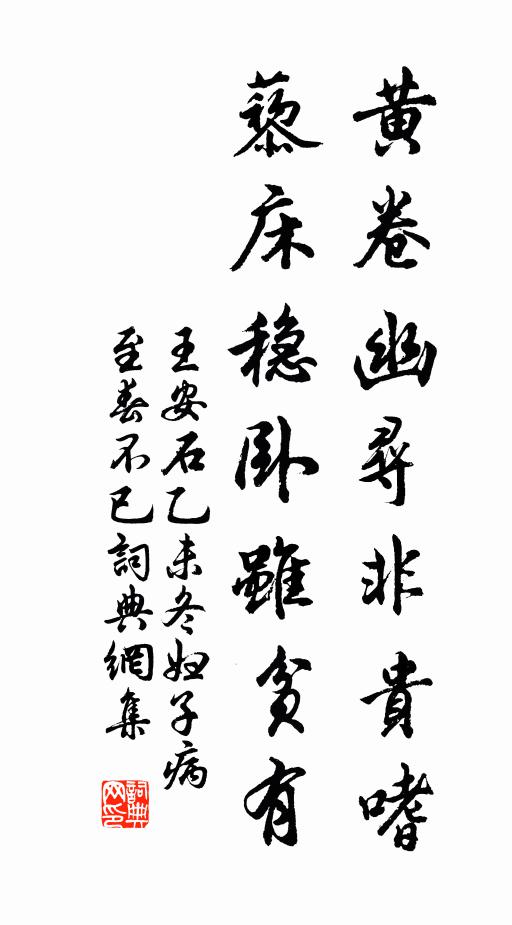 黄卷幽尋非貴嗜
藜床稳卧雖貧有
王安石乙未冬妇子病
至春不已詞典網集
詞典
网印